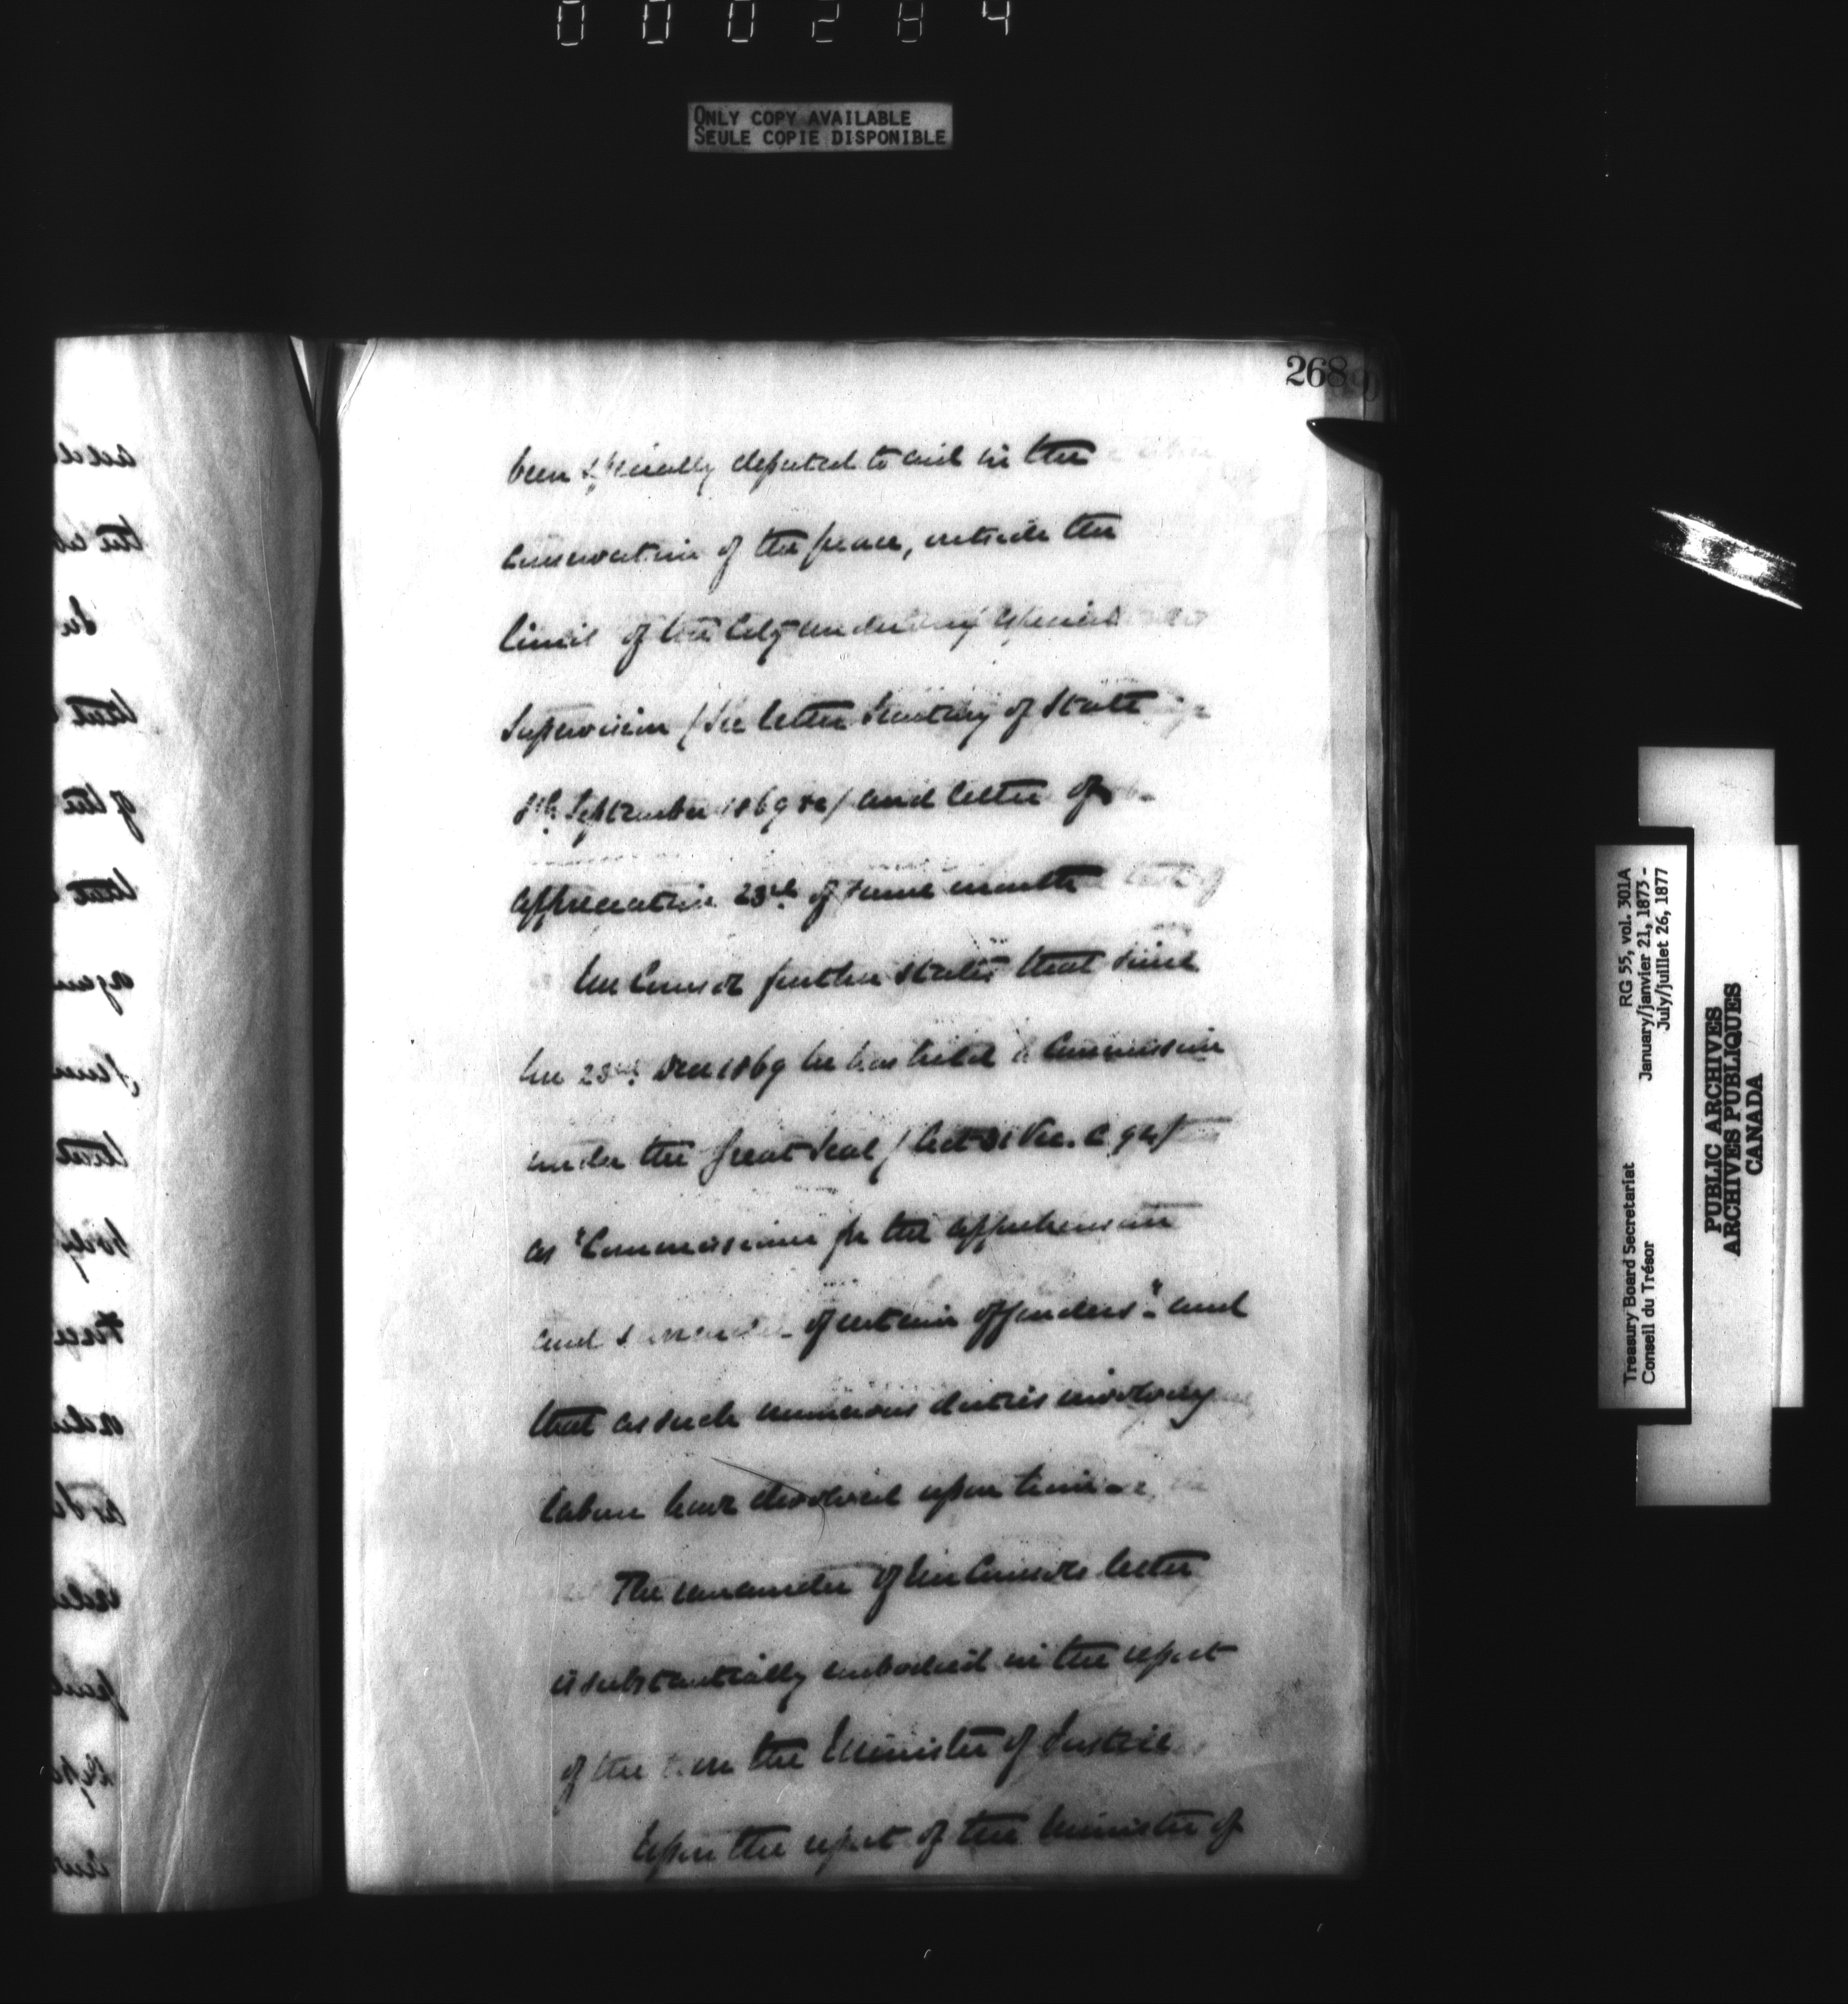 000284
ONLY COPY AVAILABLE
SEULE COPIE DISPONIBLE
268
been specially deputed to aid in the
conservation of the peace, outside the
limit of the City under my especial
supervision (See letter Secretary of State
8th September 1869 &c) and letter of
appreciation 23rd of same month
Mr Coursol further states that since
the 23rd Dec 1869 he has held a Commission
under the Great Seal (Act 31 Vic. C 94)
as "Commissioner for the apprehension
and surrender of certain offenders" and
that as such numerous duties involving
labour have devolved upon him
The remainder of Mr Coursols letter
is substantially embodied in the report
of the then the Minister of Justice
Upon the report of the Minister of
Treasury Board Secretariat
Conseil du Trésor
RG 55, vol. 301A
January/janvier 21, 1873 -
July/juillet 26, 1877
PUBLIC ARCHIVES
ARCHIVES PUBLIQUES
CANADA